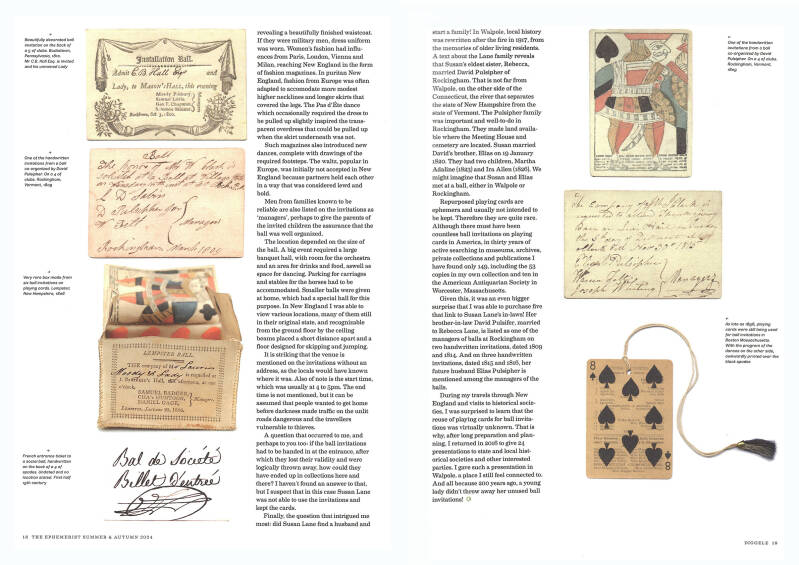 Beautifully decorated ball
invitation on the back of
a 5 of clubs. Bucktown,
Pennsylvania, 1820.
Mr C.B. Hall Esq. is invited
and his unnamed Lady
One of the handwritten
invitations from a ball
co-organized by David
Pulsipher. On a 4 of
clubs. Rockingham,
Vermont, 1809
Very rare box made from
six ball invitations on
playing cards. Lempster,
New Hampshire, 1826
French entrance ticket to
a societal, handwritten
on the back of a 9 of
spades. Undated and no
location stated. First half
19th century
Installation Ball.
Admit C.B. Hall Esqr and
Lady, to MASON'S HALL, this evening
Managers
Ball
Rockingham March 1809
LEMPSTER BALL.
THE company of
Moody & Lady is requested at
SAMUEL BARDER,
DANIEL GAGE,
Managers.
Bal de Société
Billet D'entrée
revealing a beautifully finished waistcoat.
If they were military men, dress uniform
was worn. Women's fashion had influ-
ences from Paris, London, Vienna and
Milan, reaching New England in the form
of fashion magazines. In puritan New
England, fashion from Europe was often
adapted to accomodate more modest
higher necklines and longer skirts that
covered the legs. The Pas d'Éte dance
which occasionally required the dress to
be pulled up slightly inspired the trans-
parent overdress that could be pulled up
when the skirt underneath was not.
Such magazines also introduced new
dances, complete with drawings of the
required footsteps. The waltz, popular in
Europe, was initially not accepted in New
England because partners held each other
in a way that was considered lewd and
bold.
Men from families known to be
reliable are also listed on the invitations as
'managers', perhaps to give the parents of
the invited children the assurance that the
ball was well organized.
The location depended on the size of
the ball. A big event required a large
banquet hall, with room for the orchestra
and an area for drinks and food, aswell as
space for dancing. Parking for carriages
and stables for the horses had to be
accommodated. Smaller balls were given
at home, which had a special hall for this
purpose. In New England I was able to
view various locations, many of them still
in their original state, and recognizable
from the ground floor by the ceiling
beams placed a short distance apart and a
floor designed for skipping and jumping.
It is striking that the venue is
mentioned on the invitations without an
address, as the locals would have known
where it was. Also of note is the start time,
which was usually at 4 to 5pm. The end
time is not mentioned, but it can be
assumed that people wanted to get home
before darkness made traffic on the unlit
roads dangerous and the travellers
vulnerable to thieves.
A question that occurred to me, and
perhaps to you too: if the ball invitations
had to be handed in at the entrance, after
which they lost their validity and were
logically thrown away, how could they
have ended up in collections here and
there? I haven't found an answer to that,
but I suspect that in this case Susan Lane
was not able to use the invitations and
kept the cards.
Finally, the question that intrigued me
most: did Susan Lane find a husband and
18 THE EPHEMERIST SUMMER & AUTUMN 2024
start a family! In Walpole, local history
was rewritten after the fire in 1917, from
the memories of older living residents.
A text about the Lane family reveals
that Susan's eldest sister, Rebecca,
married David Pulsipher of
Rockingham. That is not far from
Walpole, on the other side of the
Connecticut, the river that separates
the state of New Hampshire from the
state of Vermont. The Pulsipher family
was important and well-to-do in
Rockingham. They made land availa-
ble where the Meeting House and
cemetery are located. Susan married
David's brother, Elias on 19 January
1820. They had two children, Martha
Adaline (1823) and Ira Allen (1826). We
might imagine that Susan and Elias
met at a ball, either in Walpole or
Rockingham.
Repurposed playing cards are
ephemera and usually not intended to
be kept. Therefore they are quite rare.
Although there must have been
countless ball invitations on playing
cards in America, in thirty years of
active searching in museums, archives,
private collections and publications I
have found only 149, including the 53
copies in my own collection and ten in
the American Antiquarian Society in
Worcester, Massachusetts.
Given this, it was an even bigger
surprise that I was able to purchase five
that link to Susan Lane's in-laws! Her
brother-in-law David Pulsifer, married
to Rebecca Lane, is listed as one of the
managers of balls at Rockingham on
two handwritten invitations, dated 1809
and 1814. And on three handwritten
invitations, dated 1815 and 1816, her
future husband Elias Pulsipher is
mentioned among the managers of the
balls.
During my travels through New
England and visits to historical societ-
ies, I was surprised to learn that the
reuse of playing cards for ball invita-
tions was virtually unknown. That is
why, after long preparation and plan-
ning, I returned in 2016 to give 24
presentations to state and local hist-
orical societies and other interested
parties. I gave such a presentation in
Walpole, a place I still feel connected to.
And all because 200 years ago, a young
lady didn't throw away her unused ball
invitations!
One of the handwritten
invitations from a ball
co-organized by David
Pulsipher. On a 4 of clubs.
Rockingham, Vermont,
1809
The company of
Elias Pulsipher
Joseph Whiting
Managers
As late as 1896, playing
cards were still being used
for ball invitations in
Boston Massachusetts.
With the program of the
dances on the other side,
awkwardly printed over the
black spades
8
8
DIGGELE 19